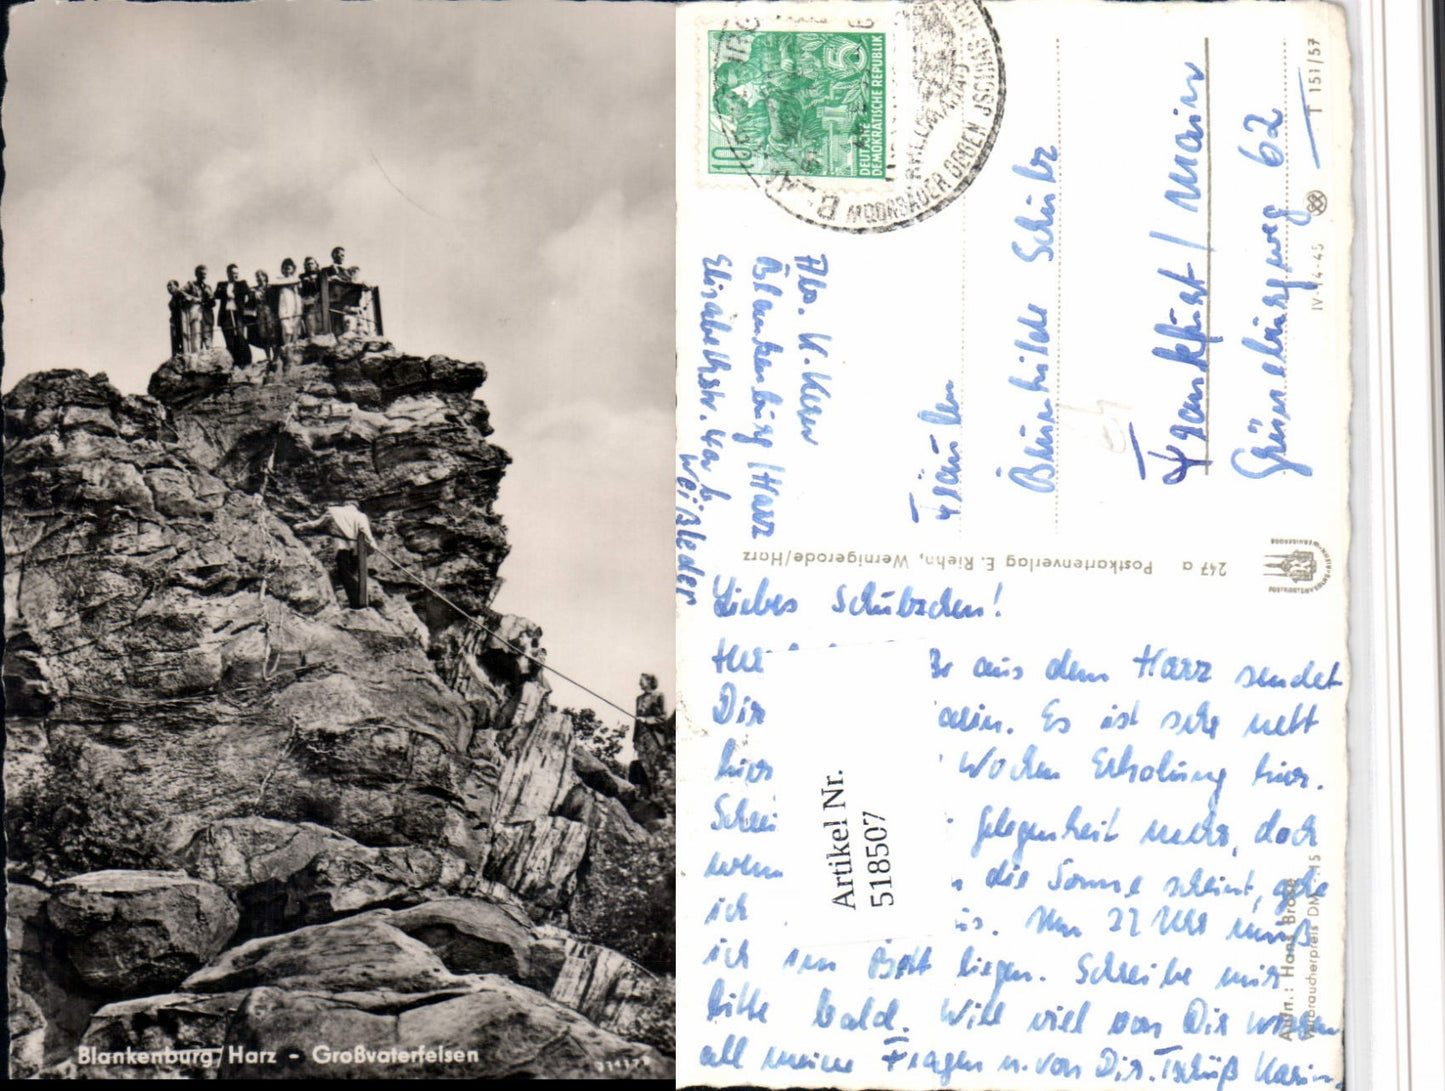 Blankenburg/Harz - Großvaterfelsen
10
5
DEUTSCHE
DEMOKRATISCHE REPUBLIK
MOORBÄDER GEGEN ISCHIAS
Abs. K. Kern
Blankenburg/Harz
Elisabethstr.
Fräulein
Brunhilde
Frankfurt/Main
Grüneburgweg 62
247 a Postkartenverlag E. Riehn, Wernigerode/Harz
IV-14-45
T 151/57
Liebes
aus dem Harz sendet
Dir
Es ist sehr nett
hier Wochen Erholung hier.
Gelegenheit mehr, doch
wenn die Sonne scheint, gehe
ich Um 22 Uhr muß
ich im Bett liegen. Schreibe mir
bitte bald. Will viel von Dir wissen
all meine Fragen u. von Dir. Tschüß Karin
Artikel Nr.
518507
Aufn.: Hans Brose
Verbraucherpreis DM